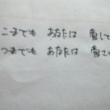 こまでも あなたは 優して
つまでも あなたは 優して